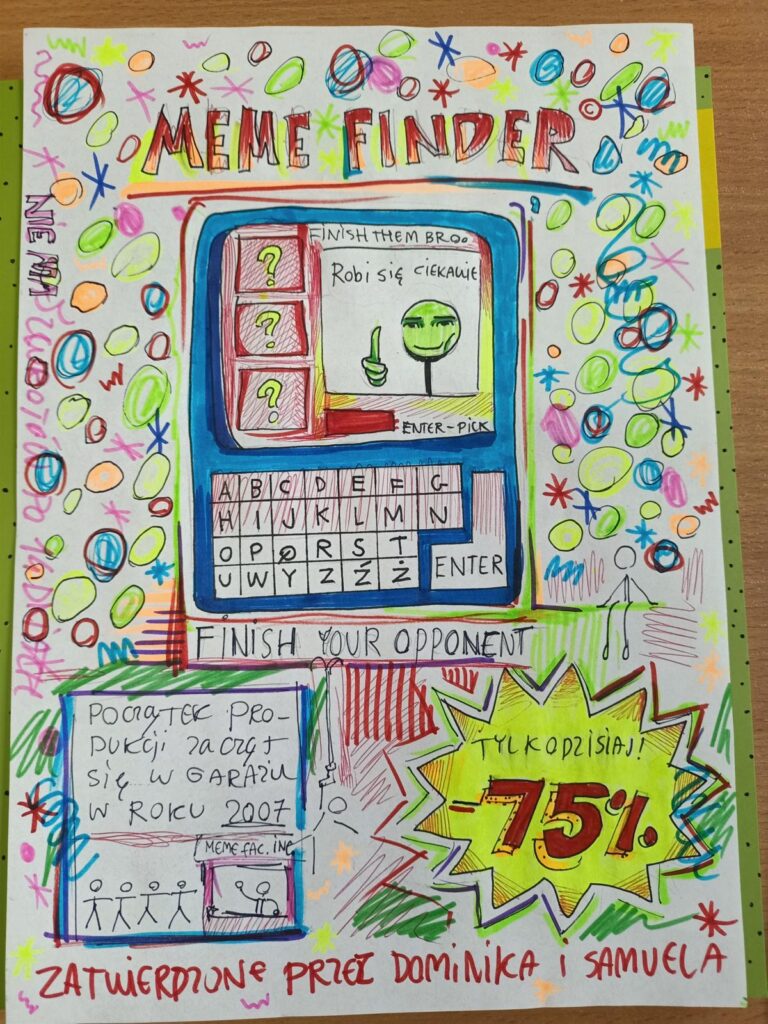 MEME FINDER ©
FINISH THEM BRO..
? 
ROBI SIĘ CIEKAWIE
?
?
ENTER-PICK
A B C D E F G
H I J K L M N
O P Q R S T
U W Y Z Ź Ż
ENTER
FINISH YOUR OPPONENT
POCZĄTEK PRO-
DUKCJI ZACZĄŁ
SIĘ W GARAŻU
W ROKU 2007
MEME FAC. INC
TYLKO DZISIAJ!
-75%
ZATWIERDZONE PRZEZ DOMINIKA i SAMUELA
NIE MA ZWROTÓW PO